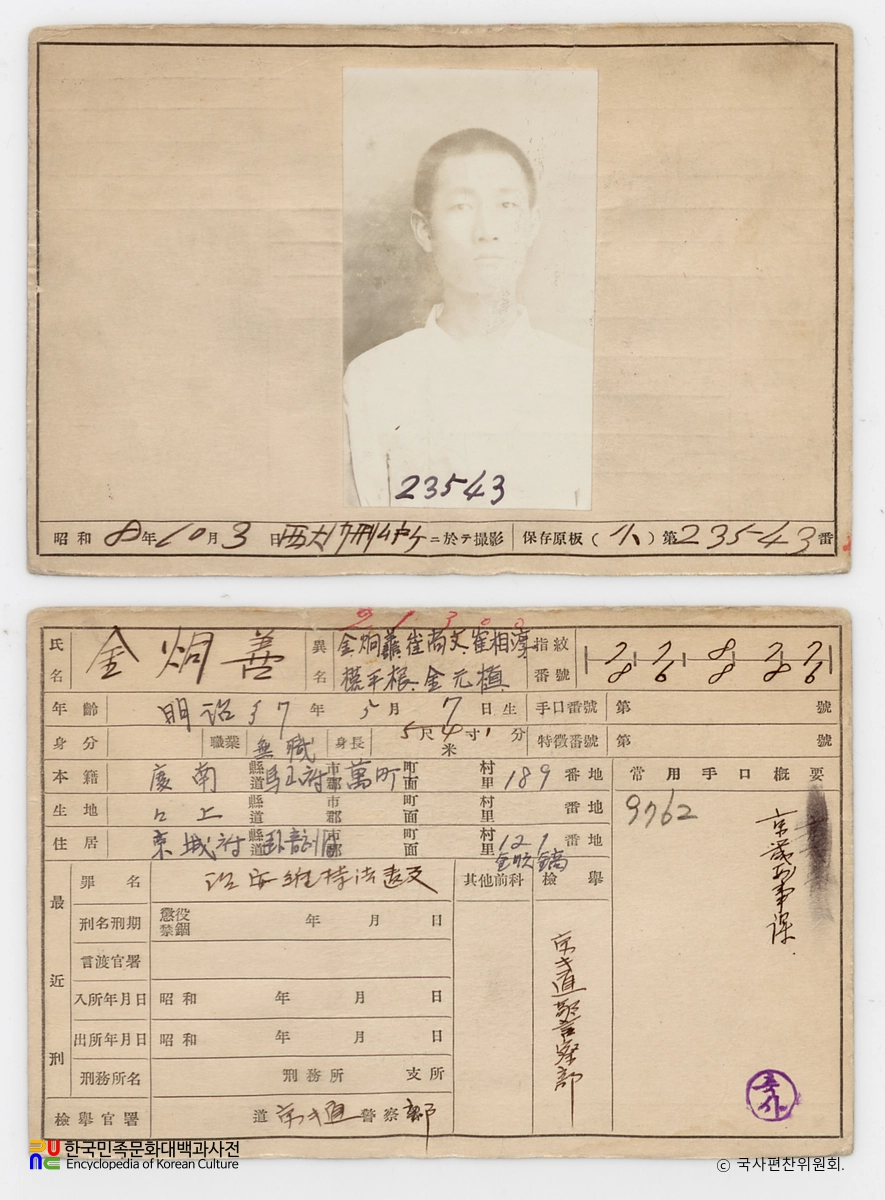 23543
昭和 8年10月3日 西大門刑ム所ニ於テ撮影 保存原板(小)第23543番
21300
氏名 金炯善 異名 金炯善 崔尚文 崔相淳 金元植 指紋番號
年齡 明治37年5月7日生 手口番號 第 號
身分 職業 無職 身長 5尺4寸1分 米 特徵番號 第 號
本籍 慶南 縣道 馬山府 市郡 萬町 町面 村里 189番地 常用手口概要
9762
生地 仝上 縣道 市郡 町面 村里 番地
住居 京城府 縣道 市郡 町面 村里 121番地
京畿刑事課
最近刑
罪名 治安維持法違反 其他前科 檢擧
京畿道警察部
刑名刑期 懲役 禁錮 年 月 日
言渡官署
入所年月日 昭和 年 月 日
出所年月日 昭和 年 月 日
刑務所名 刑務所 支所
檢擧官署 道 京畿道 警察部
한국민족문화대백과사전
Encyclopedia of Korean Culture
© 국사편찬위원회.